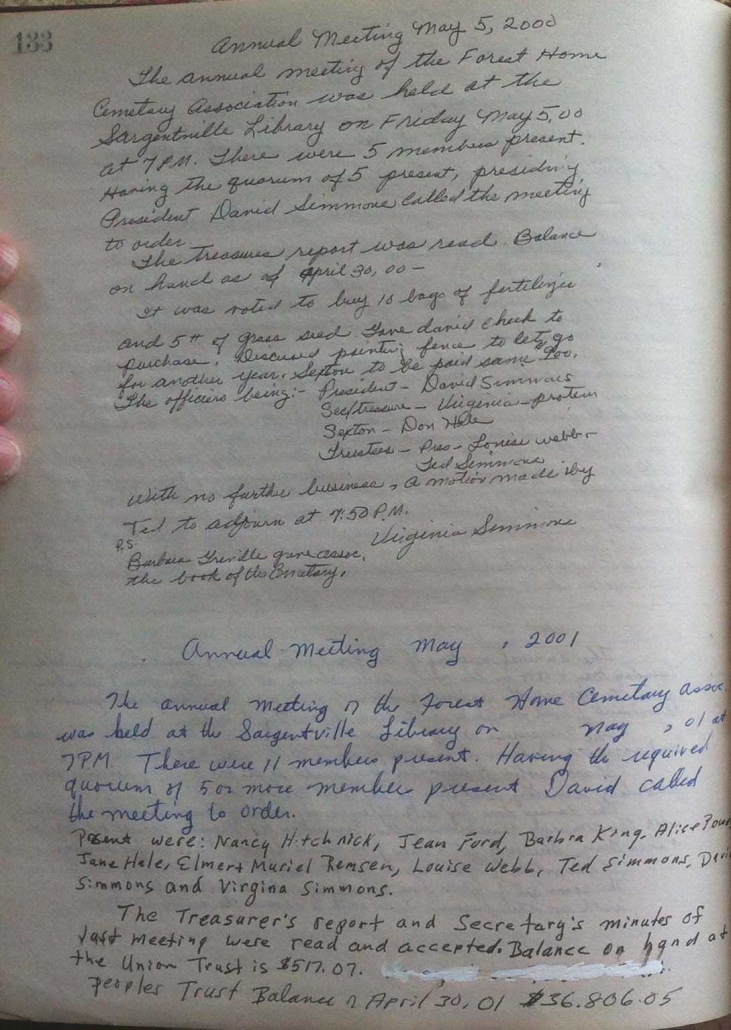 133
Annual Meeting May 5, 2000
The annual meeting of the Forest Home
Cemetary Association was held at the
Sargentville Library on Friday May 5, 00
at 7 P.M. There were 5 members present.
Having the quorum of 5 present, presiding
President David Simmons called the meeting
to order.
The treasures report was read. Balance
on hand as of April 30, 00 –
It was voted to buy 10 bags of fertilizer
and 5# of grass seed. Gave david check to
purchase. Discused painting fence to let go
for another year. Sexton to be paid same 900.
The officers being:- President - David Simmons
Sec/treasure - Virginia - protem
Sexton - Don Hale
Trustees - Pres - Louise Webb -
Ted Simmons
With no further business, a motion made by
Ted to adjourn at 7:50 P.M.
Virginia Simmons
P.S.
Barbara gave assoc.
the book of the Cemetary.
Annual Meeting May , 2001
The annual meeting of the Forest Home Cemetary assoc.
was held at the Sargentville Library on May , 01 at
7PM. There were 11 members present. Having the required
quorum of 5 or more members present David called
the meeting to order.
Present were: Nancy Hitchnick, Jean Ford, Barbra King, Alice
Jane Hale, Elmer + Muriel Remsen, Louise Webb, Ted Simmons,
Simmons and Virgina Simmons.
The Treasurer's report and Secretary's minutes of
last meeting were read and accepted. Balance on hand at
the Union Trust is $517.07.
Peoples Trust Balance April 30, 01 $36.806.05